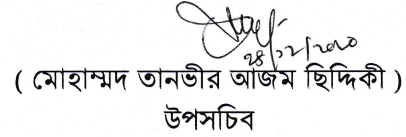 28/12/2020
( মোহাম্মদ তানভীর আজম ছিদ্দিকী )
উপসচিব